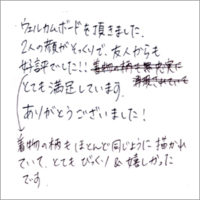 ウェルカムボードを頂きました。
2人の顔がそっくりで、友人からも
好評でした!!
とても満足しています。
ありがとうございました!
着物の柄もほとんど同じように描かれ
ていて、とてもびっくり&嬉しかった
です。